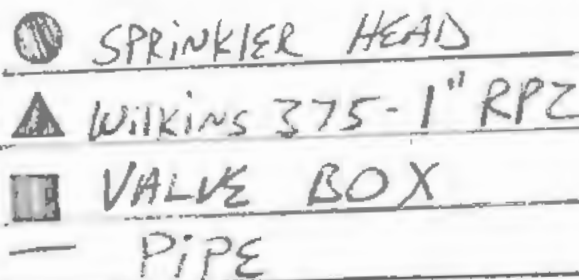 SPRINKLER HEAD
WILKINS 375-1" RPZ
VALVE BOX
PIPE